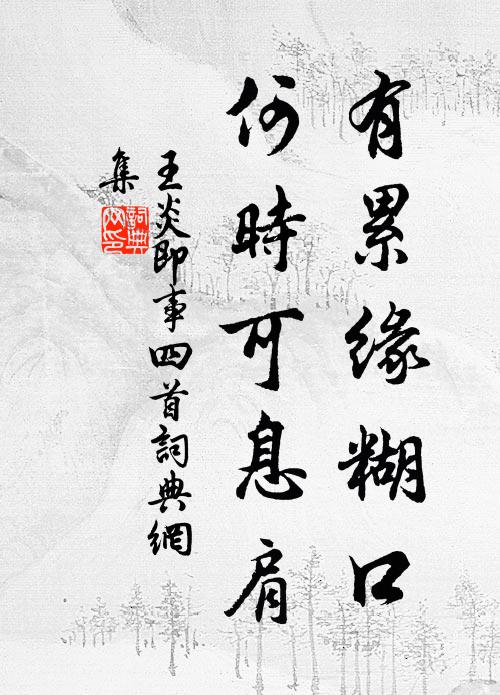 有累緣糊口
何時可息肩
王炎即事四首詞典網
集
詞典
网印